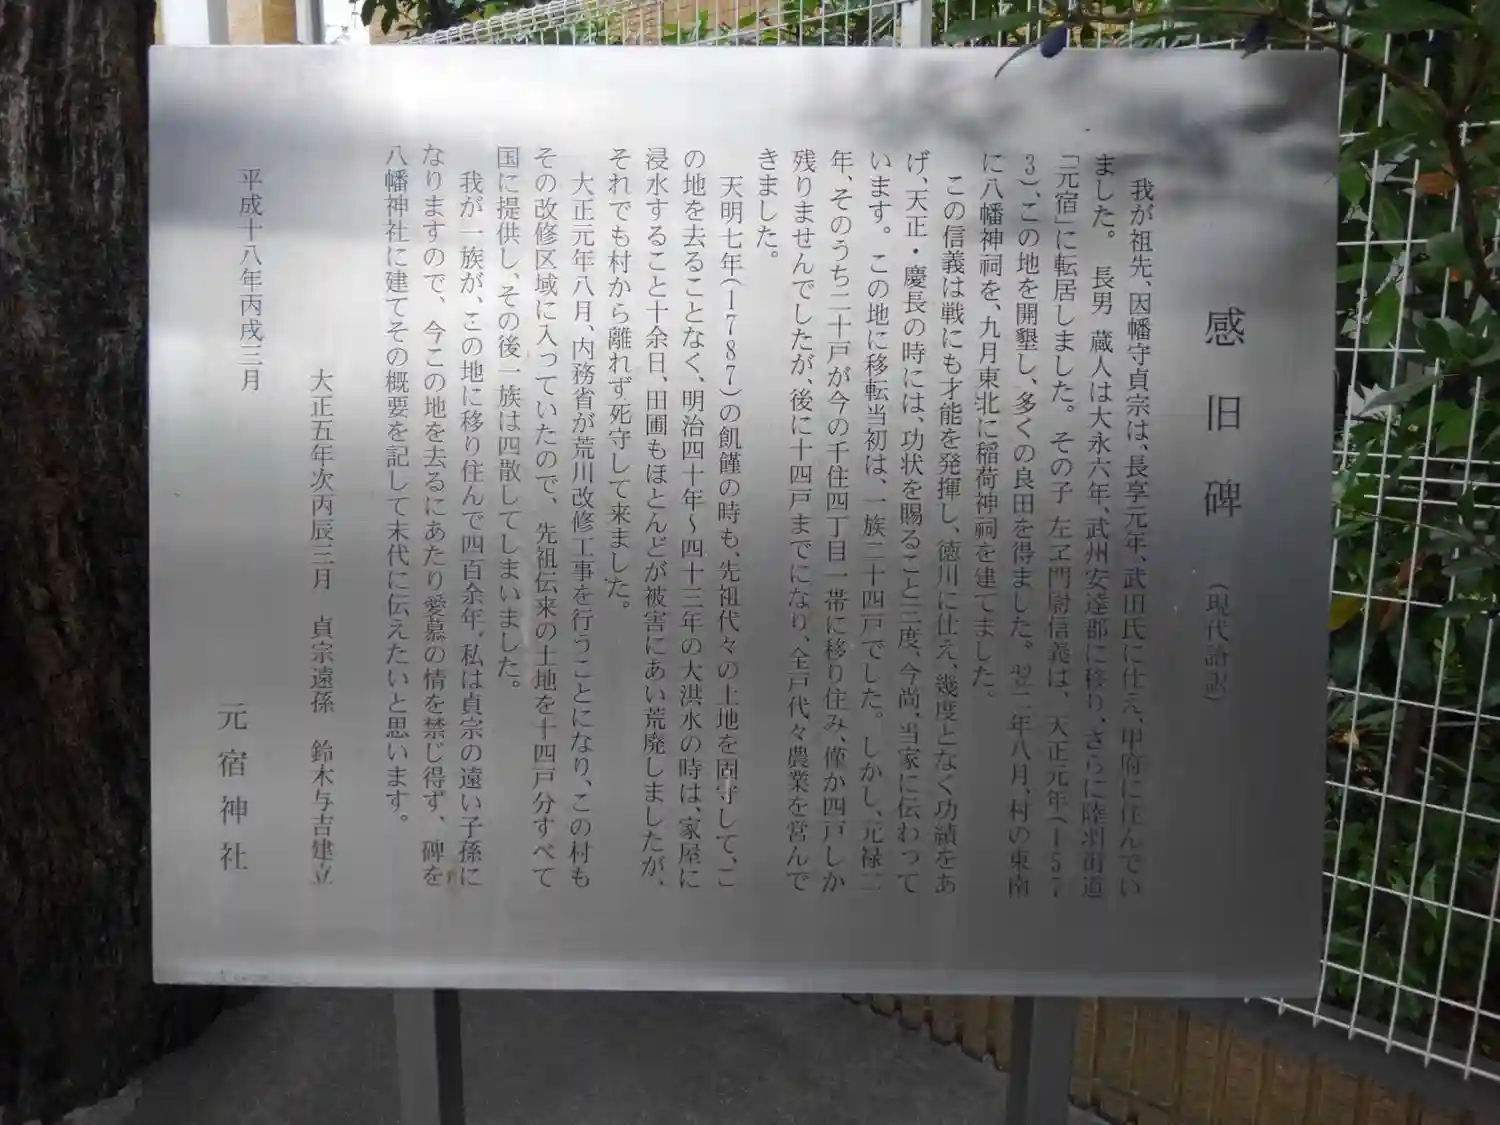 感旧碑（現代語訳）
我が祖先、因幡守貞宗は、長享元年、武田氏に仕え、甲府に住んでい
ました。 長男 蔵人は大永六年、武州安達郡に移り、さらに陸羽街道
「元宿」に転居しました。その子 左ヱ門尉信義は、天正元年(157
3)、この地を開墾し、多くの良田を得ました。翌二年八月、村の東南
に八幡神祠を、九月東北に稲荷神祠を建てました。
この信義は戦にも才能を発揮し、徳川に仕え、幾度となく功績をあ
げ、天正・慶長の時には、功状を賜ること三度、今尚、当家に伝わって
います。 この地に移転当初は、一族二十四戸でした。しかし、元禄二
年、そのうち二十戸が今の千住四丁目一帯に移り住み、僅か四戸しか
残りませんでしたが、後に十四戸までになり、全戸代々農業を営んで
きました。
天明七年(1787)の飢饉の時も、先祖代々の土地を固守して、こ
の地を去ることなく、明治四十年～四十三年の大洪水の時は、家屋に
浸水すること十余日、田圃もほとんどが被害にあい荒廃しましたが、
それでも村から離れず死守して来ました。
大正元年八月、内務省が荒川改修工事を行うことになり、この村も
その改修区域に入っていたので、先祖伝来の土地を十四戸分すべて
国に提供し、その後一族は四散してしまいました。
我が一族が、この地に移り住んで四百余年、私は貞宗の遠い子孫に
なりますので、今この地を去るにあたり愛慕の情を禁じ得ず、碑を
八幡神社に建てその概要を記して末代に伝えたいと思います。
大正五年次丙辰三月 貞宗遠孫 鈴木与吉建立
平成十八年丙戌三月
元宿神社